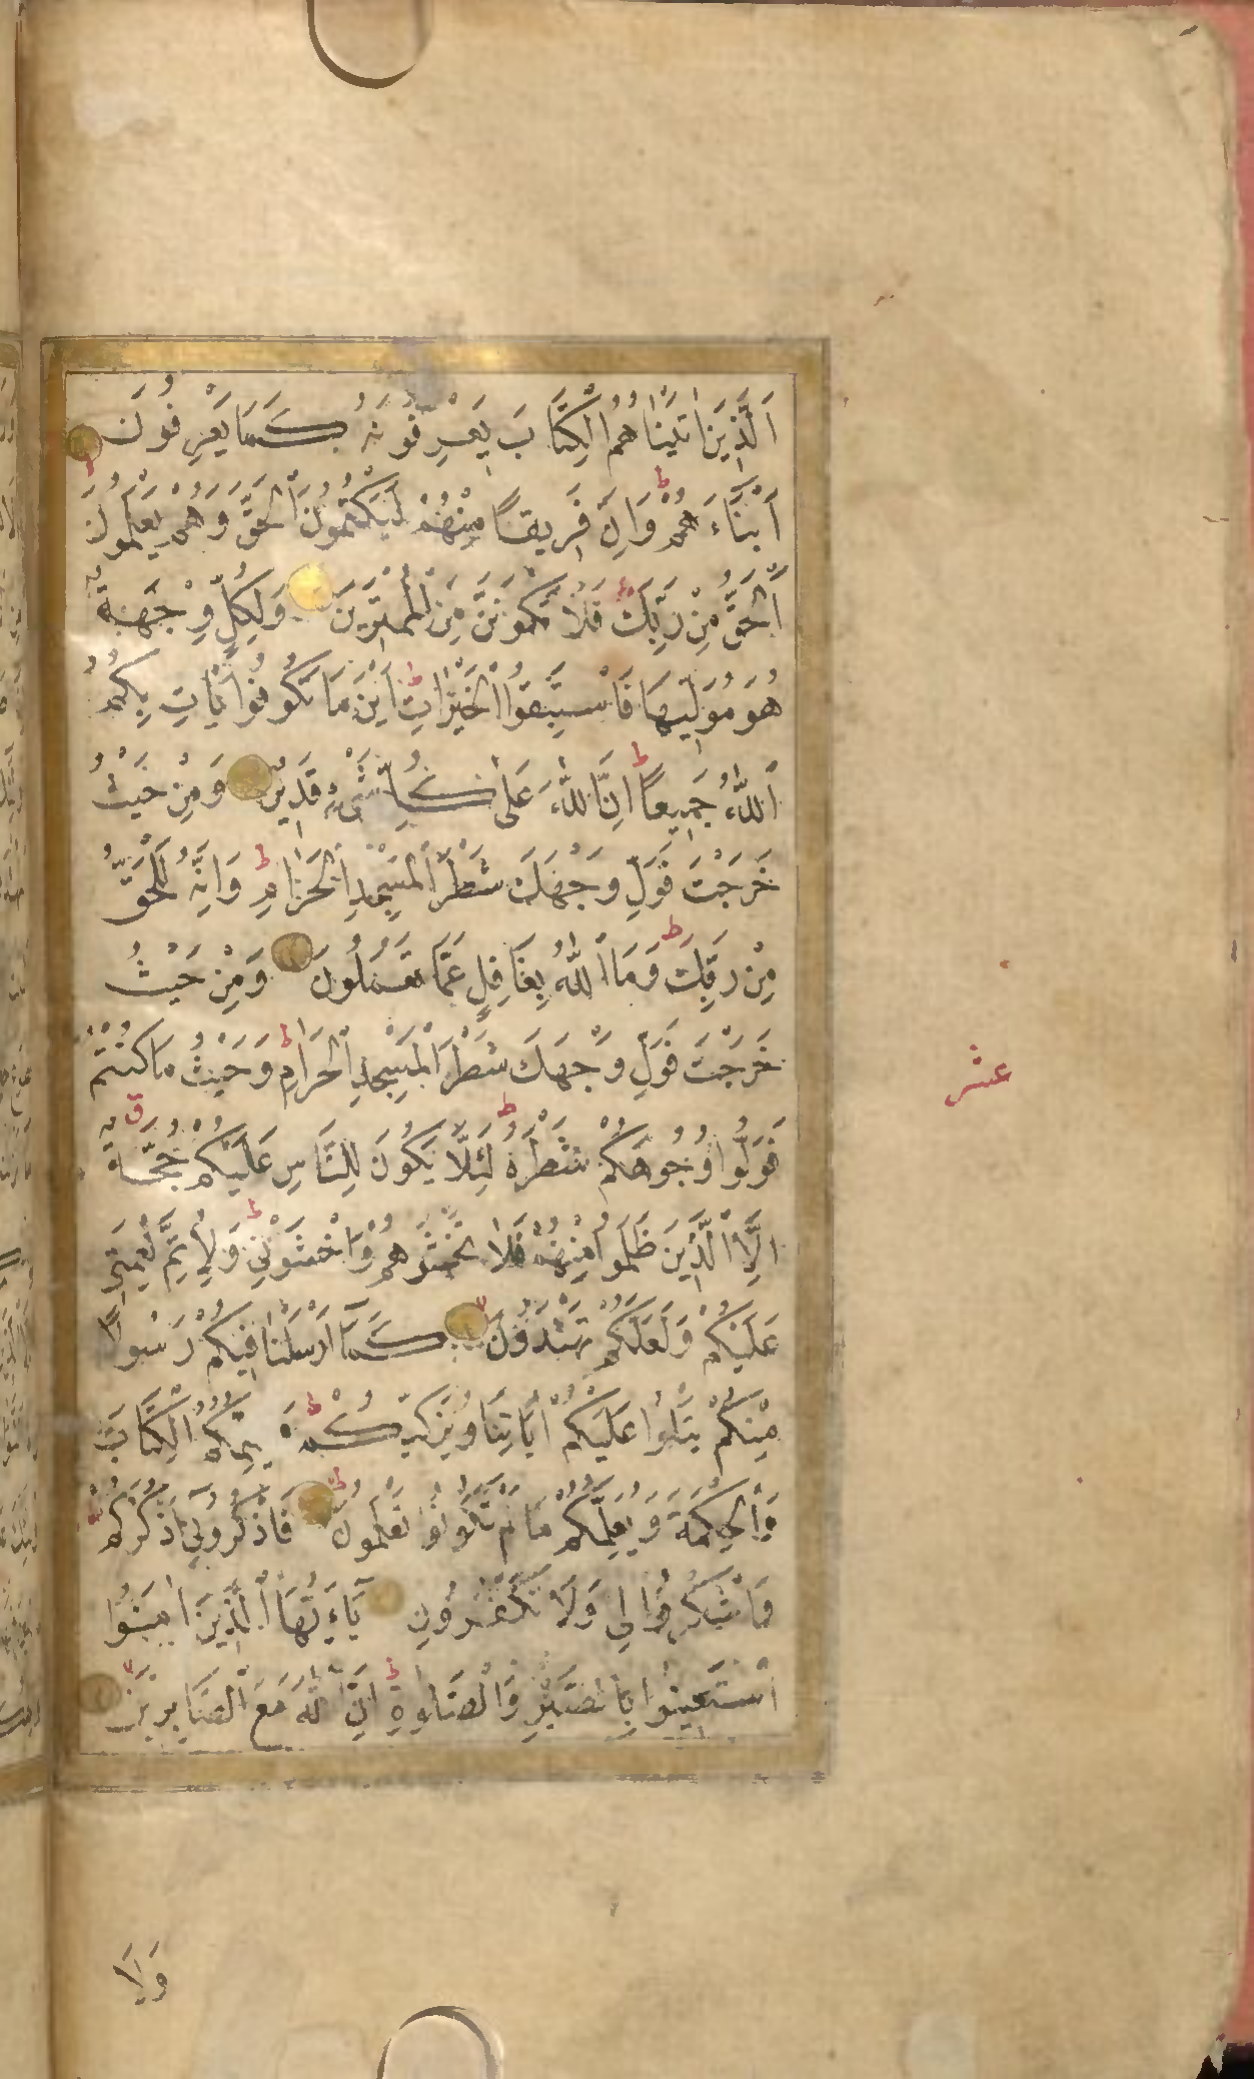 اَلَّذِينَ اٰتَيْنَاهُمُ الْكِتَابَ يَعْرِفُونَهُ كَمَا يَعْرِفُونَ
اَبْنَاءَهُمْ ط وَاِنَّ فَرِيقًا مِنْهُمْ لَيَكْتُمُونَ الْحَقَّ وَهُمْ يَعْلَمُونَ
اَلْحَقُّ مِنْ رَبِّكَ فَلَا تَكُونَنَّ مِنَ الْمُمْتَرِينَ وَلِكُلٍّ وِجْهَةٌ
هُوَ مُوَلِّيهَا فَاسْتَبِقُوا الْخَيْرَاتِ ط اَيْنَ مَا تَكُونُوا يَاْتِ بِكُمُ
اللّٰهُ جَمِيعًا ط اِنَّ اللّٰهَ عَلٰى كُلِّ شَيْءٍ قَدِيرٌ وَمِنْ حَيْثُ
خَرَجْتَ فَوَلِّ وَجْهَكَ شَطْرَ الْمَسْجِدِ الْحَرَامِ ط وَاِنَّهُ لَلْحَقُّ
مِنْ رَبِّكَ ط وَمَا اللّٰهُ بِغَافِلٍ عَمَّا تَعْمَلُونَ وَمِنْ حَيْثُ
خَرَجْتَ فَوَلِّ وَجْهَكَ شَطْرَ الْمَسْجِدِ الْحَرَامِ ط وَحَيْثُ مَا كُنْتُمْ
فَوَلُّوا وُجُوهَكُمْ شَطْرَهُ ط لِئَلَّا يَكُونَ لِلنَّاسِ عَلَيْكُمْ حُجَّةٌ ق
اِلَّا الَّذِينَ ظَلَمُوا مِنْهُمْ فَلَا تَخْشَوْهُمْ وَاخْشَوْنِي ط وَلِاُتِمَّ نِعْمَتِي
عَلَيْكُمْ وَلَعَلَّكُمْ تَهْتَدُونَ كَمَا اَرْسَلْنَا فِيكُمْ رَسُولًا
مِنْكُمْ يَتْلُوا عَلَيْكُمْ اٰيَاتِنَا وَيُزَكِّيكُمْ ط وَيُعَلِّمُكُمُ الْكِتَابَ
وَالْحِكْمَةَ وَيُعَلِّمُكُمْ مَا لَمْ تَكُونُوا تَعْلَمُونَ ط فَاذْكُرُونِي اَذْكُرْكُمْ
وَاشْكُرُوا لِي وَلَا تَكْفُرُونِ يَاءَيُّهَا الَّذِينَ اٰمَنُوا
اسْتَعِينُوا بِالصَّبْرِ وَالصَّلٰوةِ ط اِنَّ اللّٰهَ مَعَ الصَّابِرِينَ
وَلَا
عشر